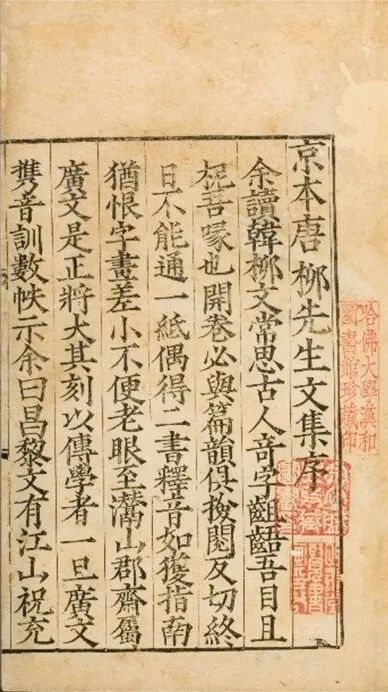 京本唐柳先生文集序
余讀韓柳文常思古人奇字齟齬吾目且
柅吾喙也開卷必與篇韻俱挽閱反切終
日不能通一紙偶得二書釋音如獲指南
猶恨字畫差小不便老眼至灊山郡齋屬
廣文是正將大其刻以傳學者一旦廣文
携音訓數帙示余曰昌黎文有江山祝充
哈佛大學漢和
圖書館珍藏印